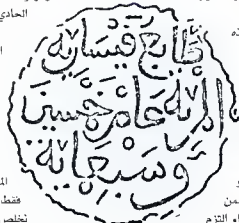 الحادي
طابع قيسارية
المرية عام خمسين
وسبعماية
من
فقط
التزم